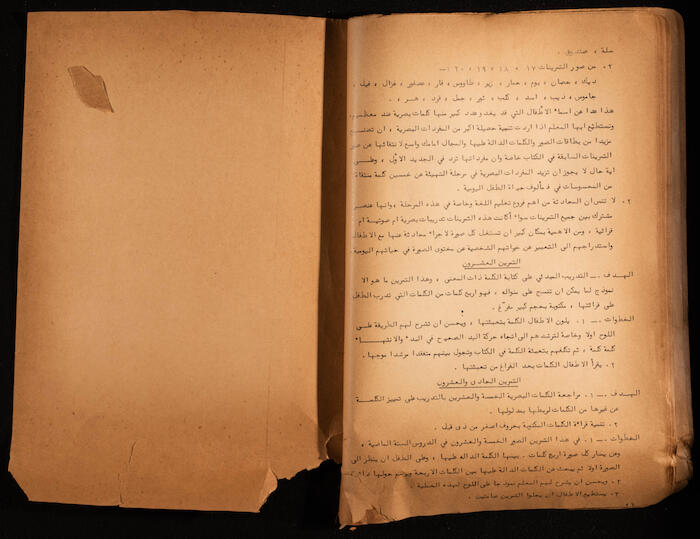 سلة ، صندوق .
٢. من صور التمرينات ١٧ ، ١٨ ، ١٩ ، ٢٠ :ـ
ديك ، حصان ، بوم ، حمار ، زير ، طاووس ، فار ، عصفور ، غزال ، فيل ،
جاموس ، ذيب ، اسد ، كلب ، ثور ، جمل ، قرد ، هر .
هذا عدا عن اسماء الاطفال التي قد يغدو عدد كبير منها كلمات بصرية عند معظمهم ،
وتستطيع ايها المعلم اذا اردت تنمية حصيلة اكبر من المفردات البصرية ، ان تصنع
مزيدا من بطاقات الصور والكلمات الدالة عليها والمجال امامك واسع لانتقائها من صور
التمرينات السابقة في الكتاب خاصة وان مفرداتها ترد في الجديد الاول ، وعلى
اية حال لا يجوز ان تزيد المفردات البصرية في مرحلة التهيئة عن خمسين كلمة منتقاة
من المحسوسات في مألوف حياة الطفل اليومية .
٢. لا تنس ان المحادثة من اهم فروع تعليم اللغة وخاصة في هذه المرحلة ، وانها عنصر
مشترك بين جميع التمرينات سواء أكانت هذه التمرينات تدريبات بصرية ام صوتية ام
قرائية ، ومن الاهمية بمكان كبير ان تستغل كل صورة لاجراء محادثة عنها مع الاطفال
واستدراجهم الى التعبير عن خبراتهم الشخصية عن محتوى الصورة في حياتهم اليومية .
التمرين العشرون
الهدف :ـ التدريب المبدئي على كتابة الكلمة ذات المعنى ، وهذا التمرين ما هو الا
نموذج لما يمكن ان تنسج على منواله ، فهو اربع كلمات من الكلمات التي تدرب الطفل
على قرائتها ، مكتوبة بحجم كبير مفرغ .
الخطوات :ـ ١. يلون الاطفال الكلمة بتعبئتها ، ويحسن ان تشرح لهم الطريقة على
اللوح اولا وخاصة لترشدهم الى اتجاه حركة اليد الصحيح في البدء والانتهاء
كلمة كلمة ، ثم تكلفهم بتعبئة الكلمة في الكتاب وتتجول بينهم متفقدا مرشدا موجها .
٢. يقرأ الاطفال الكلمات بعد الفراغ من تعبئتها .
التمرين الحادي والعشرون
الهدف :ـ ١. مراجعة الكلمات البصرية الخمسة والعشرين بالتدريب على تمييز الكلمة
عن غيرها من الكلمات لربطها بمدلولها .
٢. تنمية قراءة الكلمات المكتوبة بحروف اصغر من ذى قبل .
الخطوات :ـ ١. في هذا التمرين الصور الخمسة والعشرون في الدروس الستة الماضية ،
وعن يسار كل صورة اربع كلمات . بينها الكلمة الدالة عليها ، وعلى الطفل ان ينظر الى
الصورة اولا ثم يبحث عن الكلمات الدالة عليها بين الكلمات الاربعة ويرسم حولها دائرة
٢. ويحسن ان يشرح لهم المعلم نموذجا على اللوح لهذه العملية .
٣. يستطيع الاطفال ان يحلوا التمرين صامتين .